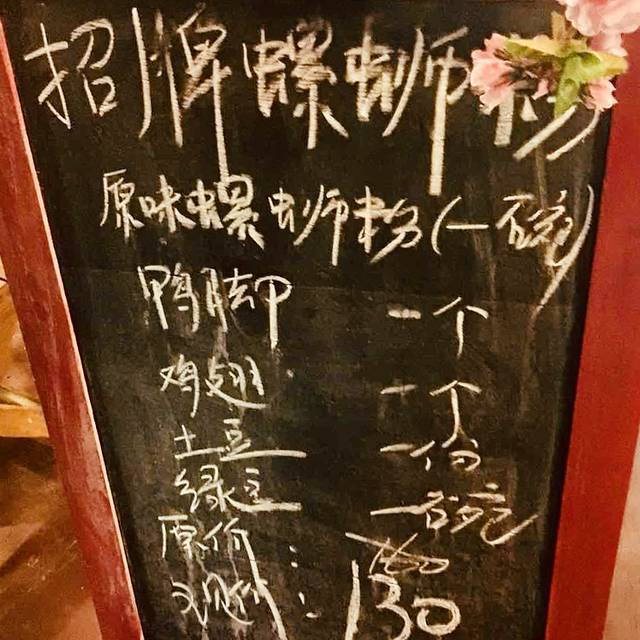 招牌螺蛳粉
原味螺蛳粉(一碗)
鸭脚 一个
鸡翅 一个
土豆 一份
绿豆 一碗
原价:
现价: 130